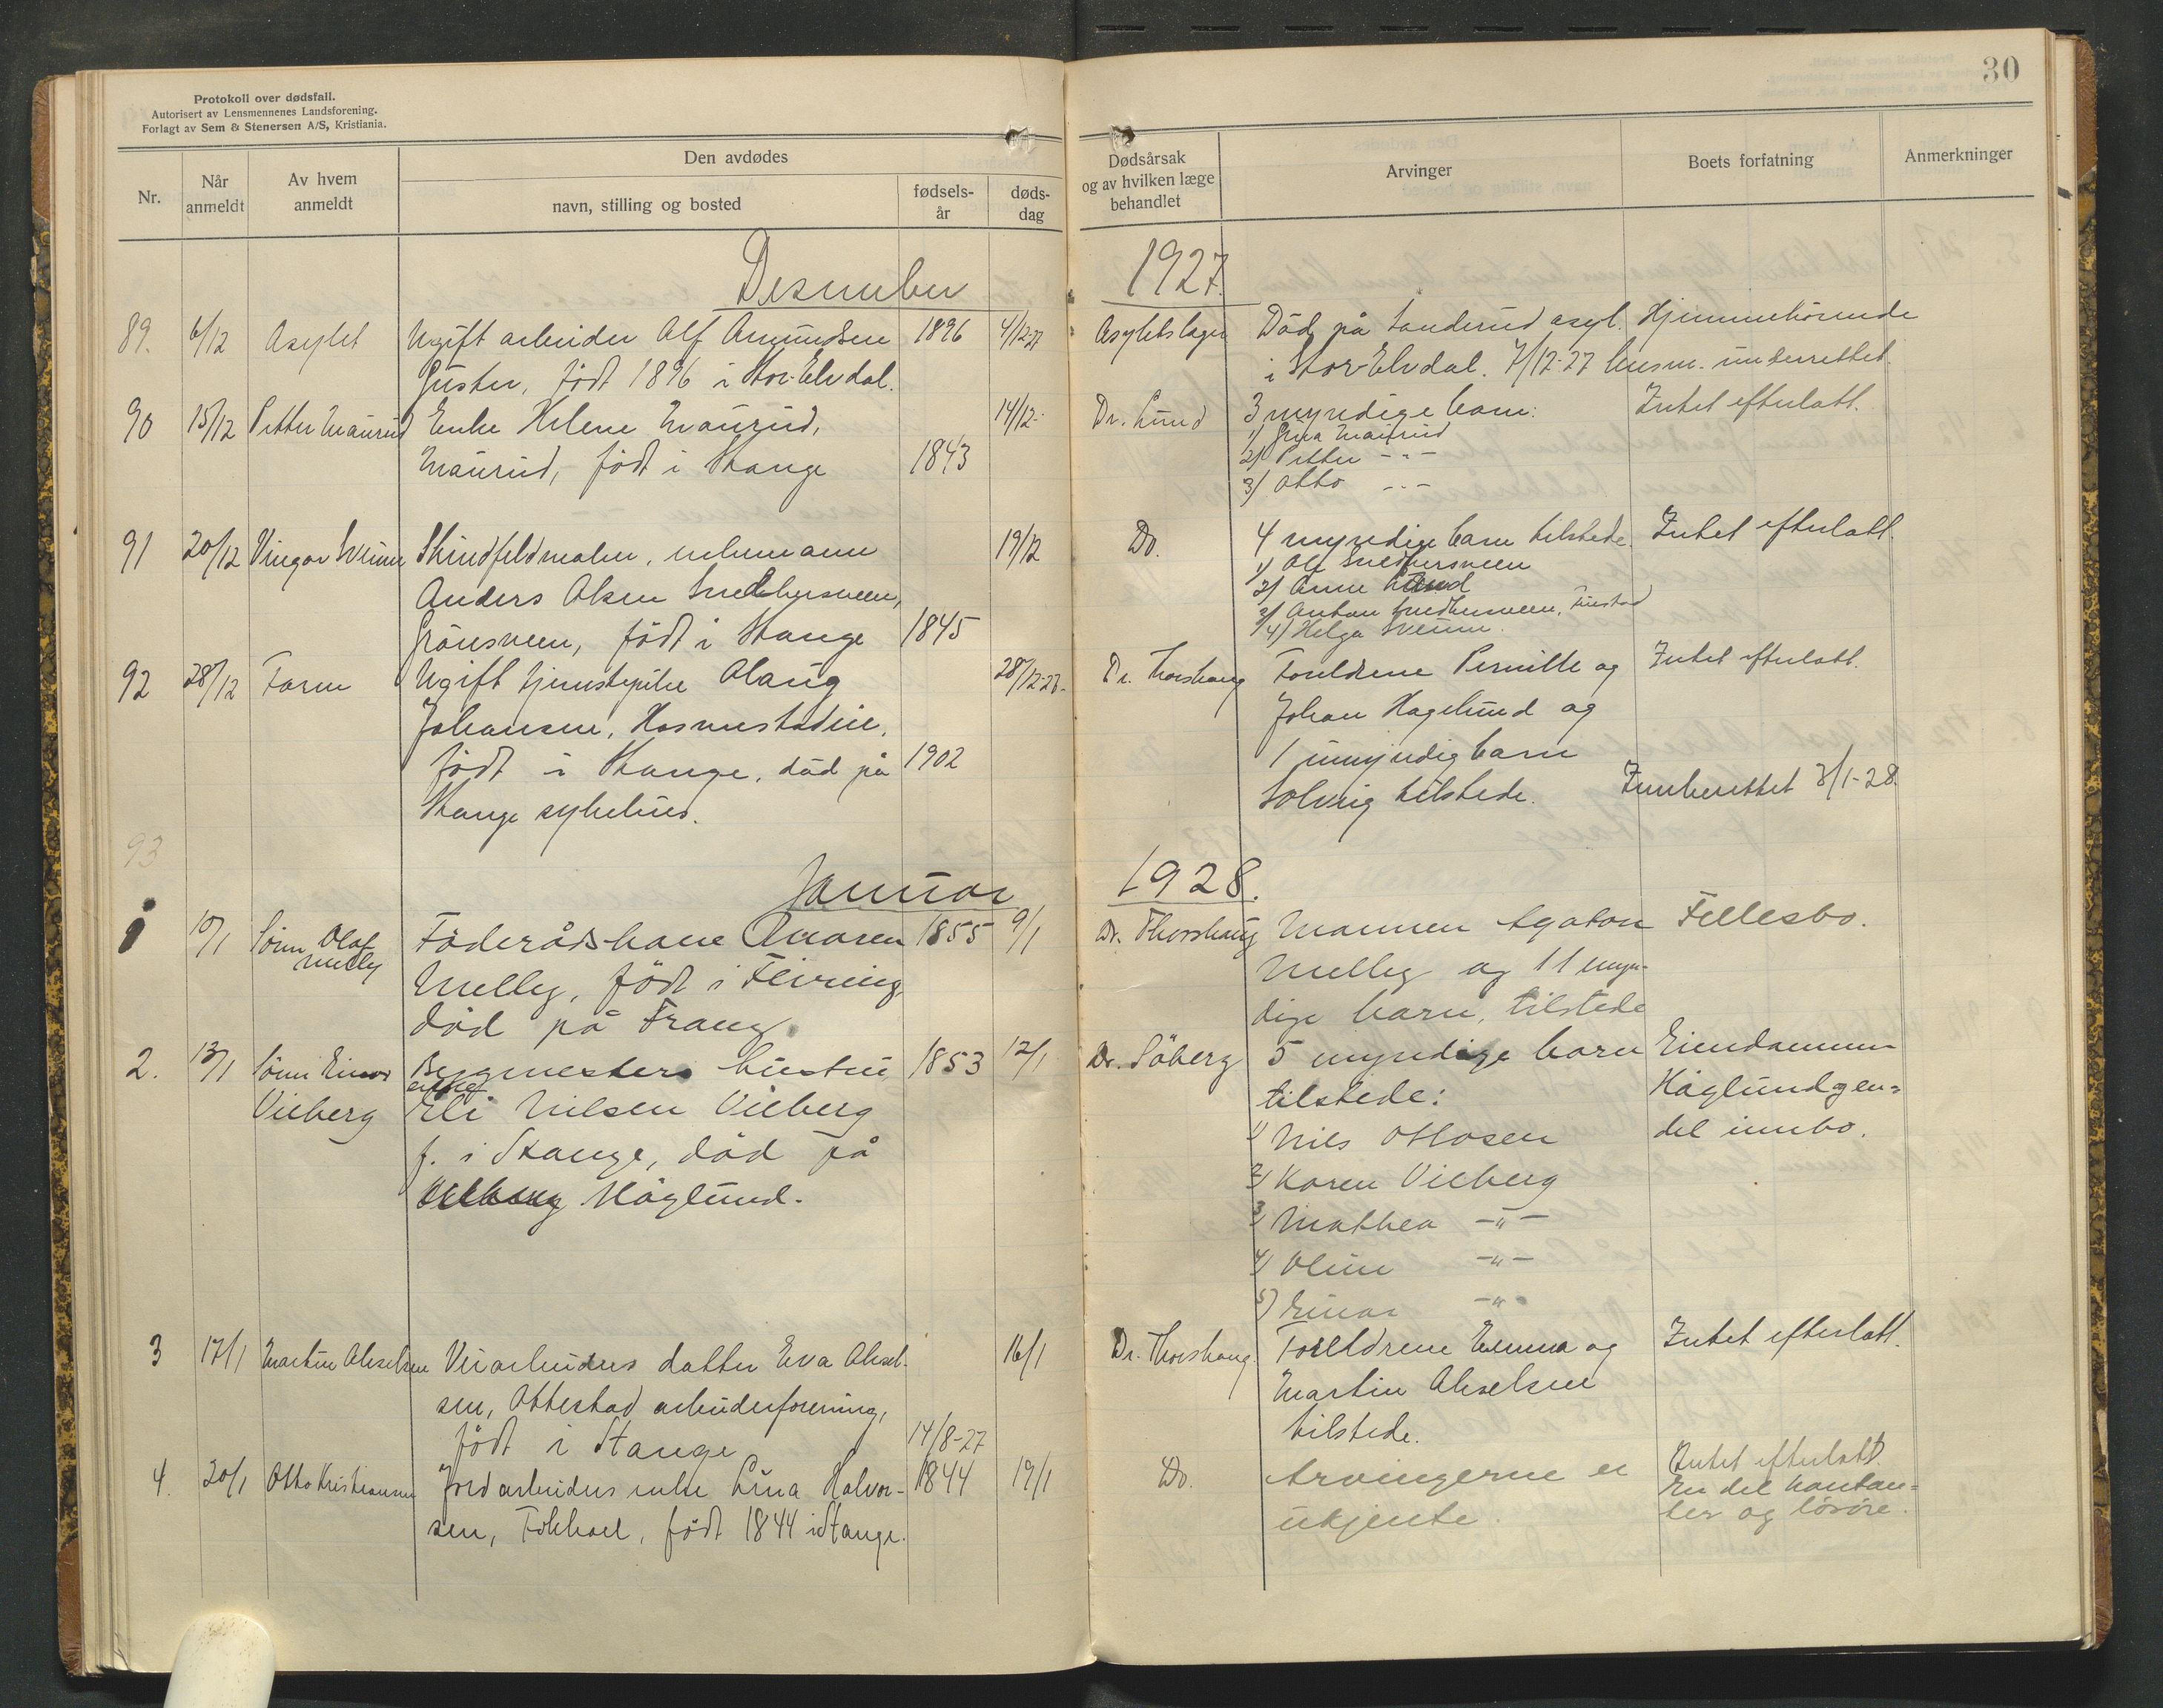 Protokoll over dødsfall.
Autorisert av Lensmennenes Landsforening.
Forlagt av Sem & Stenersen A/S, Kristiania.
30
Nr.
Når anmeldt
Av hvem anmeldt
Den avdødes
navn, stilling og bosted
fødsels-år
døds-dag
Dødsårsak og av hvilken læge behandlet
Arvinger
Boets forfatning
Anmerkninger
Desember 1927.
89. 6/12 Asylet Ugift arbeider Alf Amundsen 1896 4/12-27 Asylets læge Död på Sanderud asyl. Hjemmehörende
født 1896 i Stor-Elvdal. i Stor-Elvdal. 7/12-27 lensm. underrettet.
90 15/12 Petter Maurud Enke Helene Maurud, 14/12- Dr. Lund 3 myndige barn: Intet efterlatt.
Maurud, född i Stange 1843
1) Maurud
2) Petter -"-
3) Otto -"-
91 20/12 Sveum Skindfeldmaler, enkemann 19/12 Do. 4 myndige barn tilstede. Intet efterlatt.
Anders Olsen
född i Stange 1845
1) Ole
2) Anne
3) Anton
4) Helga Sveum.
92 28/12 Faren Ugift tjenestepike Olaug 28/12-27- Dr. Thorshaug Foreldrene Pernille og Intet efterlatt.
Johansen, Johan Hagelund og
född i Stange, död på 1902 1 umyndig barn
Stange sykehus. Solveig tilstede. Innberettet 3/1-28.
93
Januar 1928.
1 10/1 Sönn Olaf Melby Föderådskone Maren 1855 9/1 Dr. Thorshaug Mannen Agaton Fellesbo.
Melby, född i Feiring, Melby og 11 myn-
död på Frang. dige barn, tilstede
2. 13/1 Sönn Einar Bygmesters hustru 1853 12/1 Dr. Söberg 5 myndige barn Eiendommen
Vieberg Eli Nilsen Vieberg tilstede: Höglund og en
f. i Stange, död på 1) Nils Ottosen del innbo.
Höglund. 2) Karen Vieberg
3) Mathea -"-
4) Oline -"-
5) Einar -"-
3 17/1 Martin Akselsen Veiarbeiders datter Eva Aksel- 16/1 Dr. Thorshaug. Foreldrene Emma og Intet efterlatt.
sen, Ottestad arbeiderforening, Martin Akselsen
född i Stange 14/8-27 tilstede.
4. 20/1 Otto Kristiansen Jordarbeiders enke Lina Halvor- 1844 19/1 Do. Arvingerne er Intet efterlatt.
sen, född 1844 i Stange. ukjente. En del kontan-
ter og lösöre.